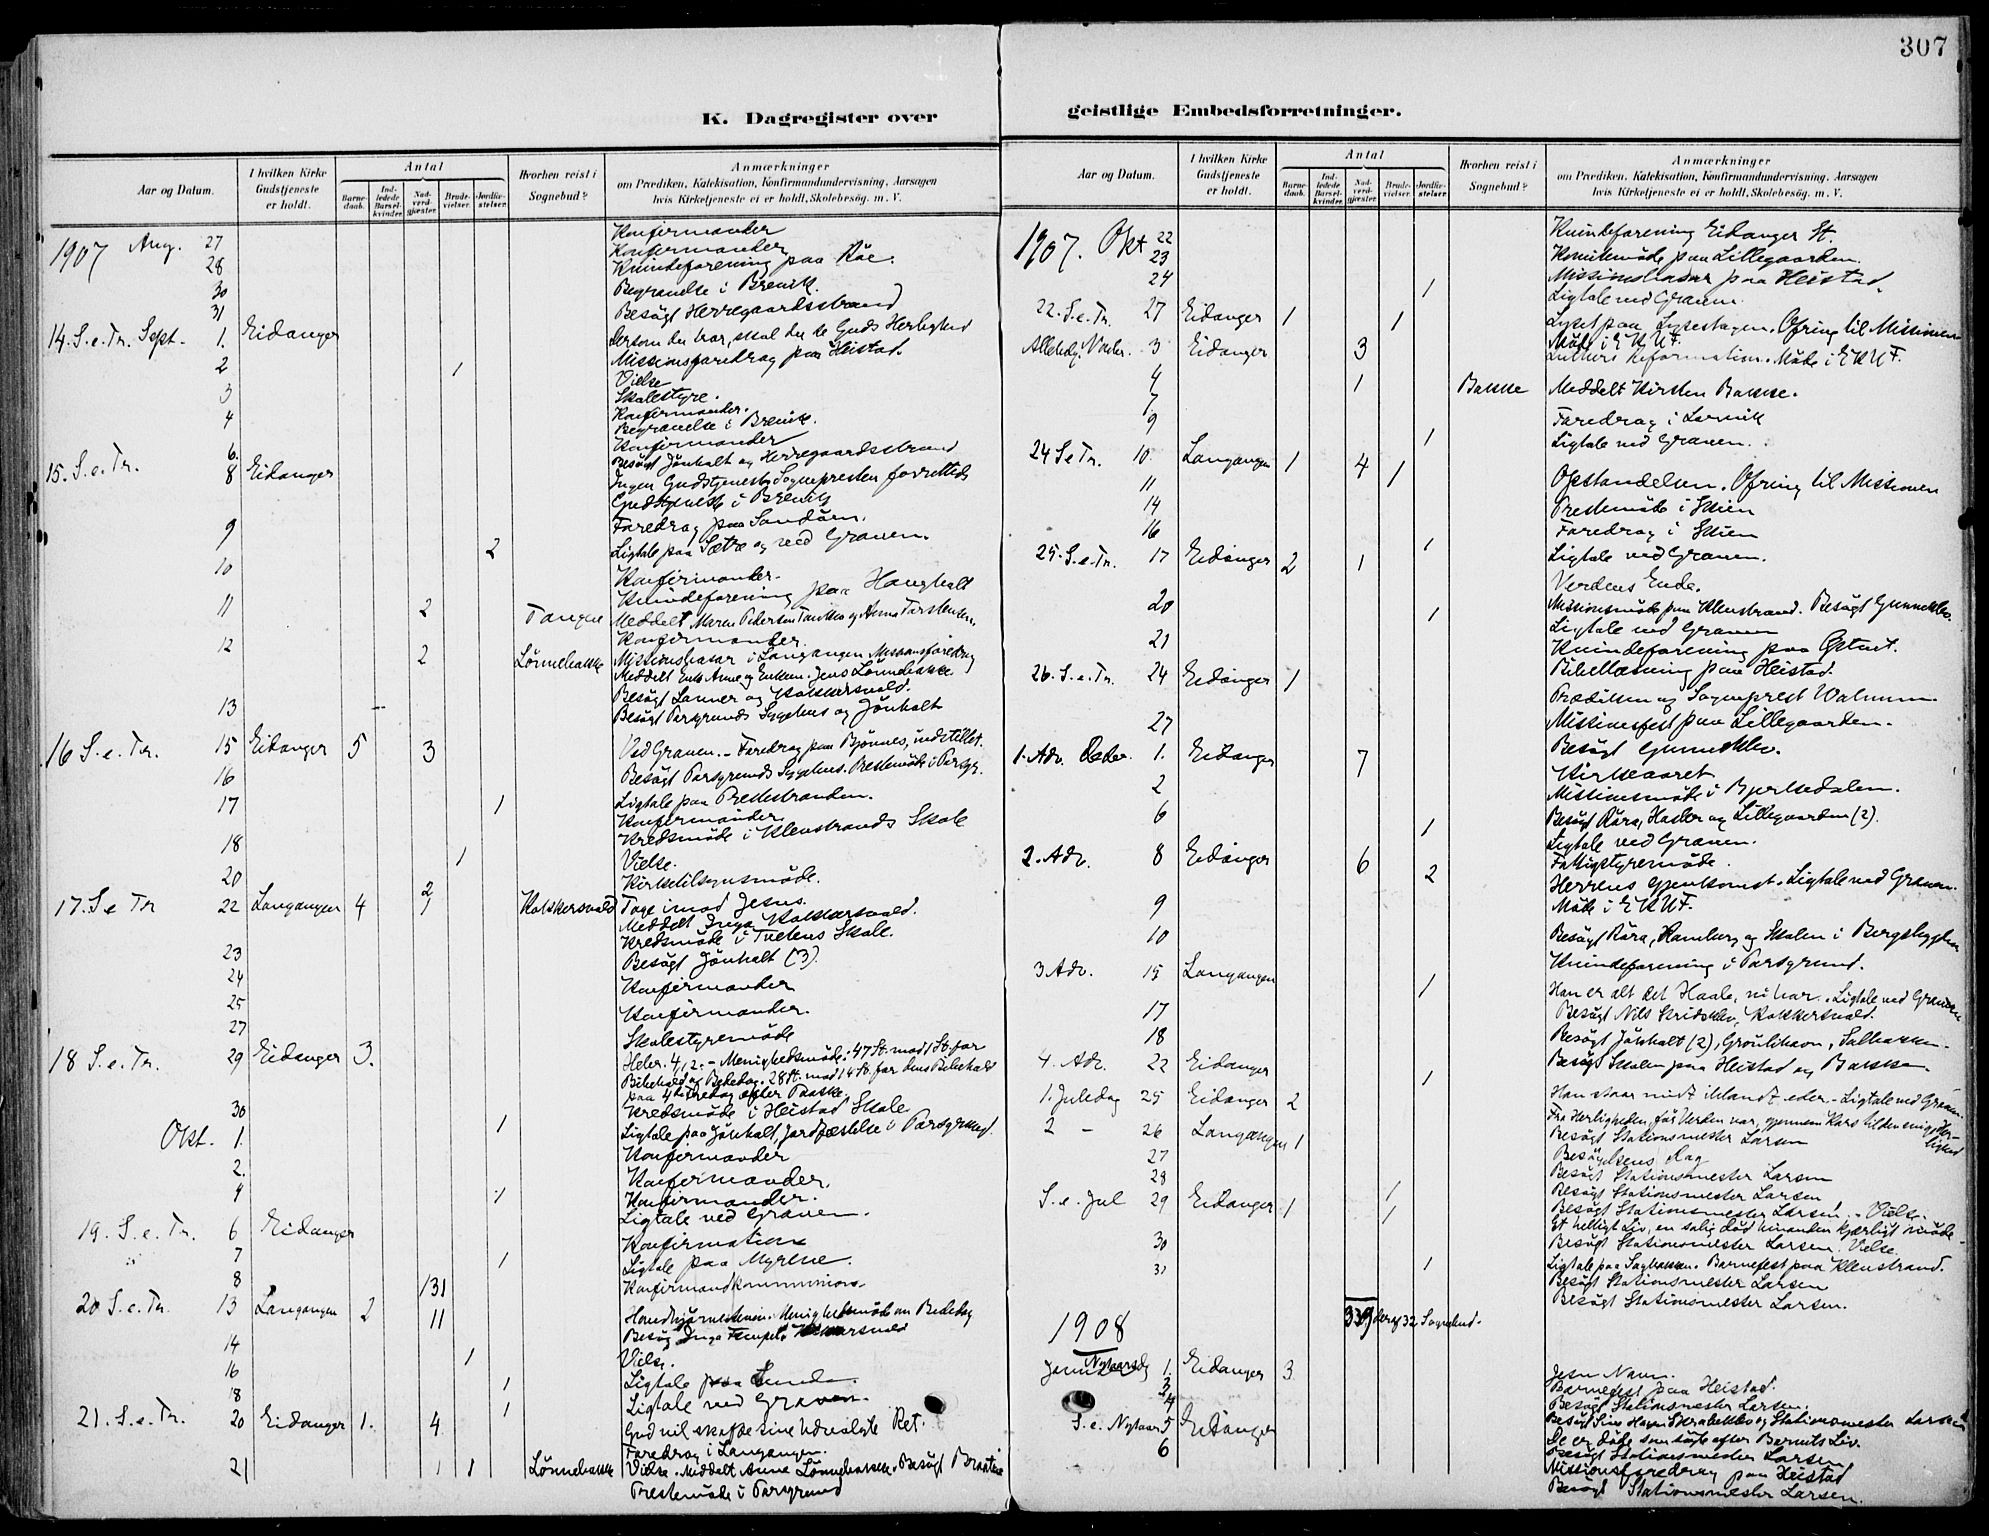 307
K. Dagregister over geistlige Embedsforretninger.
Aar og Datum.
I hvilken Kirke Gudstjeneste er holdt.
Antal
Barnedaab.
Indledede Barselkvinder.
Nadverdgjester
Brudevielser.
Jordfæstelser.
Hvorhen reist i Sognebud?
Anmærkninger
om Prædiken, Katekisation, Konfirmandundervisning, Aarsagen
hvis Kirketjeneste ei er holdt, Skolebesøg. m. V.
1907 Aug. 27 Konfirmander
28 Konfirmander
Kvindeforening paa Røe.
30 Begravelse i Brevik.
31 Besøgt Herregaardsstrand
14. S. e. Tr. Sept. 1. Eidanger Dersom du tror, skal du se Guds Herlighed
Missionsforedrag paa Heistad.
2 1 Vielse
3 Skolestyre.
4 Konfirmander.
Begravelse i Brevik.
6. Konfirmander
Besøgt Jönholt og Herregaardsstrand
15. S. e. Tr. 8 Eidanger Ingen Gudstjeneste, Sognepresten forrettede
Gudstjeneste i Brevik
Foredrag paa Sandøen.
9 2 Ligtale paa Sætre og ved Graven.
10 Konfirmander.
Kvindeforening paa Haugholt
11 2 Tangen Meddelt Maren Pedersen og Anna Torstensen
Konfirmander
12 2 Lønnebakke Missionsbasar i Langangen Missionsforedrag
Meddelt Enk. Anne og Enkem. Jens Lønnebakke
Besøgt Lanner og Kokkersvold.
13 Besøgt Porsgrunds Sygehus og Jönholt
16 S. e. Tr. 15 Eidanger 5 3 Ved Graven. - Foredrag paa Bjønnes, indstillet.
16 Besøgt Porsgrunds Sygehus. Prestemøde i Porsgr.
17 1 Ligtale paa Prestestranden.
Konfirmander
Kredsmøde i Klevstrands Skole
18 1 Vielse.
20 Kirketilsynsmøde.
17. S e Tr 22 Langangen 4 2 Kokkersvold Tage imod Jesus.
Meddelt Inga Kokkersvold.
Kredsmøde i Tvetens Skole.
23 Besøgt Jönholt (3).
24 Konfirmander
25 Konfirmander.
27 Skolestyremøde
18 S. e. Tr. 29 Eidanger 3. Hebr. 4,12. - Menighedsmøde: 47 St. mod 1 St. for
Bibehold og Bededag. 28 St. mod 14 St. for dens Bibehold
paa 4de Fredag efter Paaske
30 Kredsmøde i Heistad Skole
Okt. 1. 1 Ligtale paa Jönholt, Jordfæstelse i Porsgrund.
Konfirmander
2. Konfirmander.
4 1 Konfirmander.
Ligtale ved Graven.
19. S. e. Tr. 6 Eidanger Konfirmation
7 1 Ligtale paa Myrene.
8 131 Konfirmandkommunion.
20 S. e. Tr. 13 Langangen 2 11 Hovedhjørnestenen. Menighedsmøde om Bededag
14 1 Vielse.
16 1 Ligtale paa Lunde.
18 1 Ligtale ved Graven.
21. S. e. Tr. 20 Eidanger 1. 4 Gud vil skaffe sine Udvalgte Ret.
Foredrag i Langangen.
21 1 1 Lønnebakke Vielse. Meddelt Anne Lønnebakke. Besøgt Braaten
Prestemøde i Porsgrund
Aar og Datum.
I hvilken Kirke Gudstjeneste er holdt.
Antal
Barnedaab.
Indledede Barselkvinder.
Nadverdgjester
Brudevielser.
Jordfæstelser.
Hvorhen reist i Sognebud?
Anmærkninger
om Prædiken, Katekisation, Konfirmandundervisning, Aarsagen
hvis Kirketjeneste ei er holdt, Skolebesøg. m. V.
1907. Okt 22 Kvindeforening Eidanger St.
23 Komitemøde paa Lillegaarden.
24 Missionsbasar paa Heistad.
1 Ligtale ved Graven.
22. S. e. Tr. 27 Eidanger 1 1 Lyset paa Lysestagen. Ofring til Missionen
Møde i E K U F.
Allehelg. Novbr. 3 Eidanger 3 Luthers Reformation. Møde i E K U F.
4 1 Bakke Meddelt Kirsten Bakke.
7 Foredrag i Larvik
9 1 Ligtale ved Graven.
24 S e Tr. 10. Langangen 1 4 1 Opstandelsen. Ofring til Missionen
11 Prestemøde i Skien
14 Foredrag i Skien
16 1 Ligtale ved Graven.
25. S. e. Tr. 17 Eidanger 2 1 Verdens Ende.
Missionsmøde paa Klevstrand. Besøgt Gunneklev.
20 1 Ligtale ved Graven
21 Kvindeforening paa Østvet.
Bibellæsning paa Heistad.
26. S. e. Tr. 24 Eidanger 1 Prædiken og Sogneprest Walnum.
Missionsfest paa Lillegaarden.
27 Besøgt Gunneklev.
1. Adv. Decbr. 1. Eidanger 7 Kirkeaaret
Missionsmøde i Bjerkedalen.
2 Besøgt Röra, Hasler og Lillegaarden (2).
6 1 Ligtale ved Graven.
Fattigstyremøde.
2. Adv. 8 Eidanger 6 2 Herrens Gjenkomst. Ligtale ved Graven.
Møde i E K U F.
9 Besøgt Röra, Ramberg og Skolen i Bergsbygden
10 Kvindeforening i Porsgrund.
3 Adv. 15 Langangen 1 Han er alt det Haab, vi har. Ligtale ved Graven
17 Besøgt Nils Skridsklev, Kokkersvold.
18 Besøgt Jönholt (2), Grönlihavn, Salbakken.
Besøgt Skolen paa Heistad og Bakken.
4. Adv. 22 Eidanger 1 Han staar midt iblandt eder. - Ligtale ved Graven.
1. Juledag 25 Eidanger 2 Fra Herligheden, før Verden var, gjennem Kors til den evige Herlighed
Besøgt Stationsmester Larsen
2 - 26 Langangen 1 Besøgelsens Dag
27 Besøgt Stationsmester Larsen
28 1 Besøgt Stationsmester Larsen
Besøgt Stationsmester Larsen. - Vielse.
S. e. Jul 29 Eidanger 1 1 Et helligt Liv, en salig Død hinanden kjærligt møde.
Besøgt Stationsmester Larsen. Vielse
30 1 Ligtale paa Sagbakken. Barnefest paa Klevstrand.
Besøgt Stationsmester Larsen
31 Besøgt Stationsmester Larsen.
339 deraf 32 Sognebud.
1908
Januar Nytaarsdg 1. Eidanger 3 Jesu Navn.
3 Barnefest paa Heistad.
4 Besøgt Stationsmester Larsen.
S. e. Nytaar 5 Eidanger De er døde, som søgte efter Barnets Liv.
Besøgt Stationsmester Larsen
6 Missionsforedrag paa Heistad
Besøgt Stationsmester Larsen.